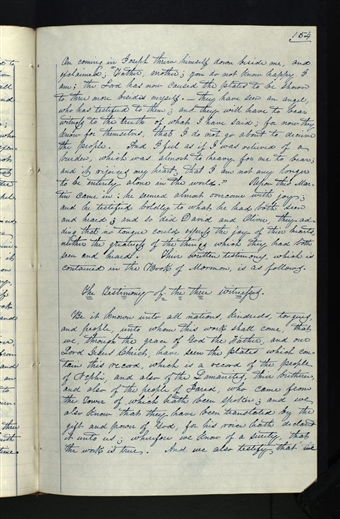 154
on coming in Joseph threw himself down beside me, and
exclaimed, "Father, mother; you do not know happy I
am; the Lord has now caused the plates to be shown
to three more besides myself. — they have seen an angel,
who has testified to them; and they will have to bear
witness to the truth of what I have said; for now they
know for themselves, that I do not go about to deceive
the people. And I feel as if I was relieved of a
burden, which was almost to heavy for me to bear;
and it rejoices my heart, that I am not any longer
to be entirely alone in the world." Upon this Mar-
tin came in: he seemed almost overcome with joy;
and he testified boldly to what he had both seen
and heard; and so did David and Oliver, they ad-
ding that no tongue could express the joy of their hearts,
neither the greatness of the things which they had both
seen and heard. Their written testimony, which is
contained in the Book of Mormon, is as follows.
The Testimony of the three witnesses.
Be it known unto all nations, kindreds, tongues,
and people, unto whom this work shall come, that
we, through the grace of God the Father, and our
Lord Jesus Christ, have seen the plates which con-
tain this record, which is a record of the people
of Nephi, and also of the Lamanites, their brethren,
and also of the people of Jared, who came from
the tower of which hath been spoken; and we
also know that they have been translated by the
gift and power of God, for his voice hath declared
it unto us; wherefore we know of a surety, that
the work is true. And we also testify that we